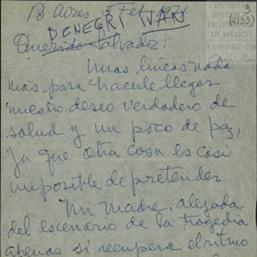 Bs Aires, 3 Feb 1971
DENEGRI IVAN
Querido Salvador:
Unas líneas nada
más para hacerle llegar
nuestro deseo verdadero de
salud y un poco de paz,
ya que otra cosa es casi
imposible de pretender
Mi madre, alejada
del escenario de la tragedia
apenas si recupera el ritmo